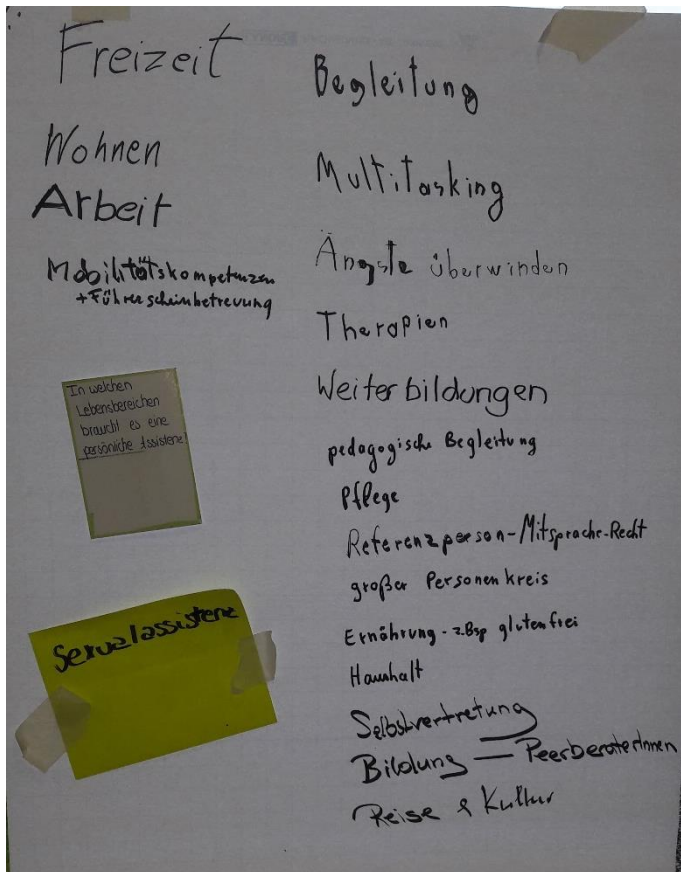 Freizeit
Wohnen
Arbeit
Mobilitätskompetenzen
+Führerscheinbetreuung
In welchen
Lebensbereichen
braucht es eine
persönliche Assistenz?
Sexualassistenz
Begleitung
Multitasking
Ängste überwinden
Therapien
Weiterbildungen
pedagogische Begleitung
Pflege
Referenzperson-Mitsprache-Recht
großer Personenkreis
Ernährung - z.Bsp glutenfrei
Haushalt
Selbstvertretung
Bildung — PeerberaterInnen
Reise & Kultur